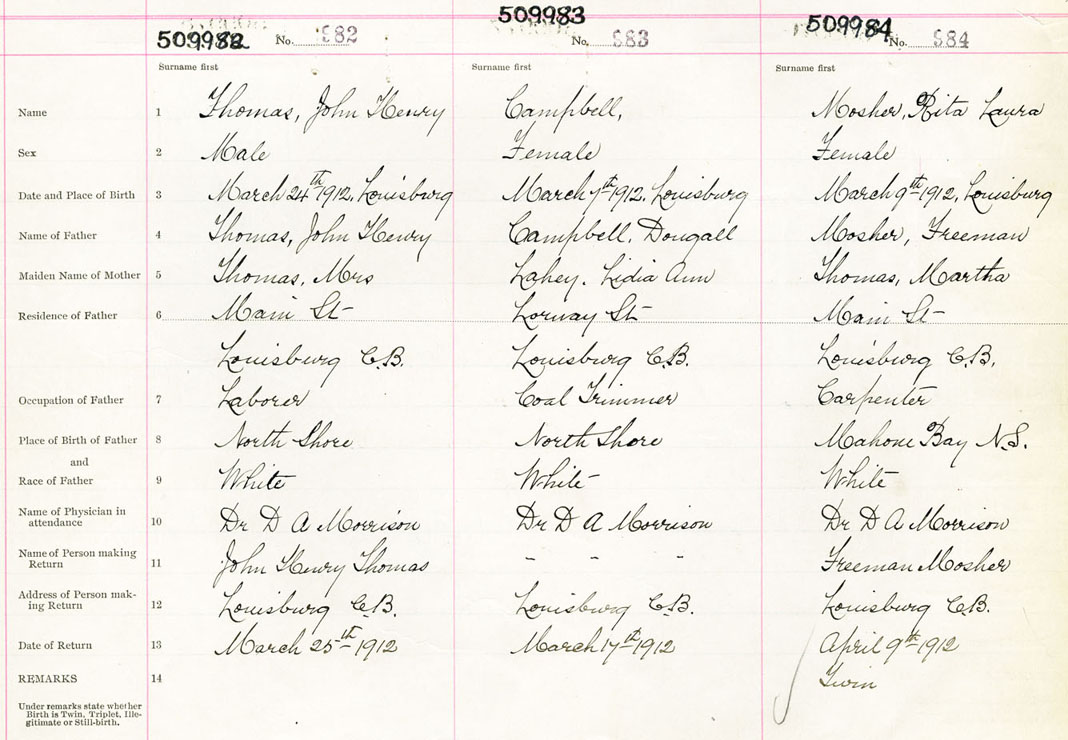 509982 No. 982 509983 No. 983 509984 No. 984
Surname first Surname first Surname first
Name 1 Thomas, John Henry Campbell, Mosher, Rita Laura
Sex 2 Male Female Female
Date and Place of Birth 3 March 24th 1912, Louisburg March 7th 1912, Louisburg March 9th 1912, Louisburg
Name of Father 4 Thomas, John Henry Campbell, Dougall Mosher, Freeman
Maiden Name of Mother 5 Thomas, Mrs Lahey. Lidia Ann Thomas, Martha
Residence of Father 6 Main St Lorway St Main St
Louisburg C.B. Louisburg C.B. Louisburg C.B.
Occupation of Father 7 Laborer Coal Trimmer Carpenter
Place of Birth of Father 8 North Shore North Shore Mahone Bay N.S.
and
Race of Father 9 White White White
Name of Physician in
attendance 10 Dr D A Morrison Dr D A Morrison Dr D A Morrison
Name of Person making
Return 11 John Henry Thomas " " " Freeman Mosher
Address of Person mak-
ing Return 12 Louisburg C.B. Louisburg C.B. Louisburg C.B.
Date of Return 13 March 25th 1912 March 17th 1912 April 9th 1912
REMARKS 14 Twin
Under remarks state whether
Birth is Twin, Triplet, Ille-
gitimate or Still-birth.